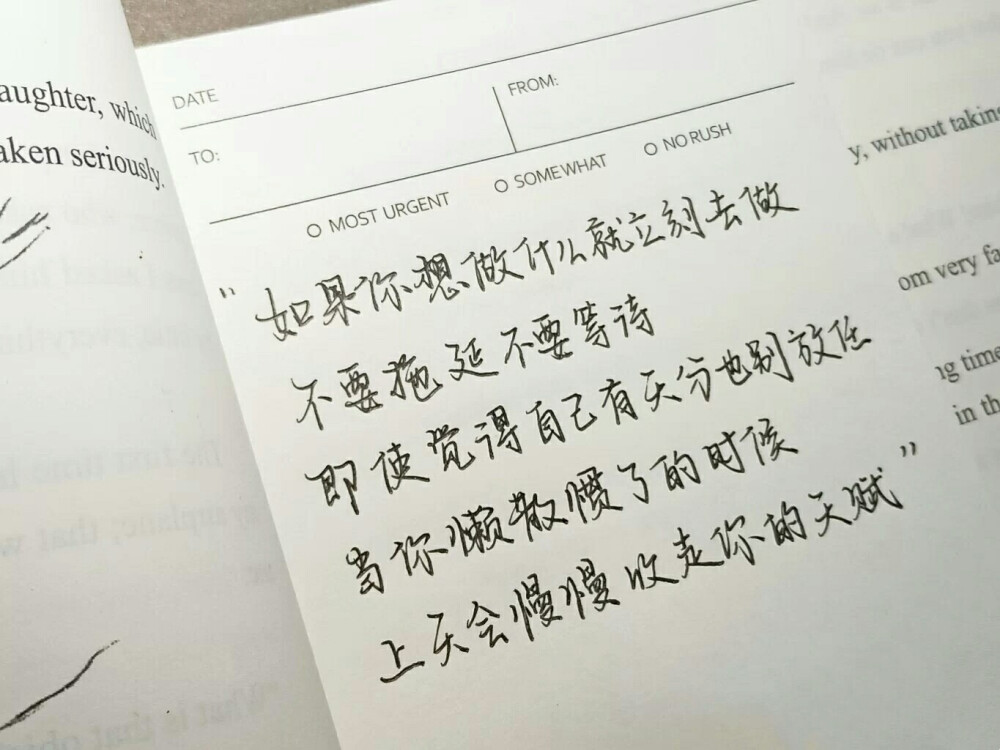 aughter, which
aken seriously.
DATE
FROM:
TO:
MOST URGENT
SOMEWHAT
NO RUSH
“如果你想做什么就立刻去做
不要拖延不要等待
即使觉得自己有天分也别放任
当你懒散惯了的时候
上天会慢慢收走你的天赋”
y, without taking
om very fa
ng time
in th